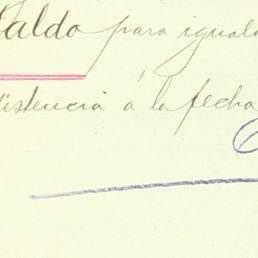 aldo para iguala
istencia á la fecha